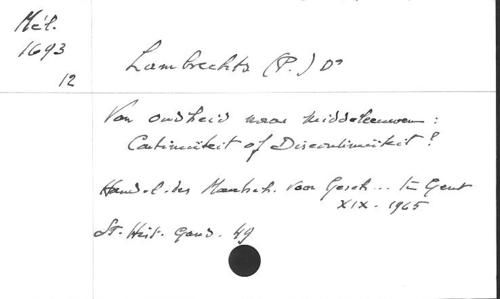 Mél.
1693
12
Lambrechts (P.) Dr
Van oudheid naar middeleeuwen :
Continuïteit of Discontinuïteit ?
Handel. der Maatsch. voor Gesch... te Gent
XIX - 1965
St. Hist. Gand. 49